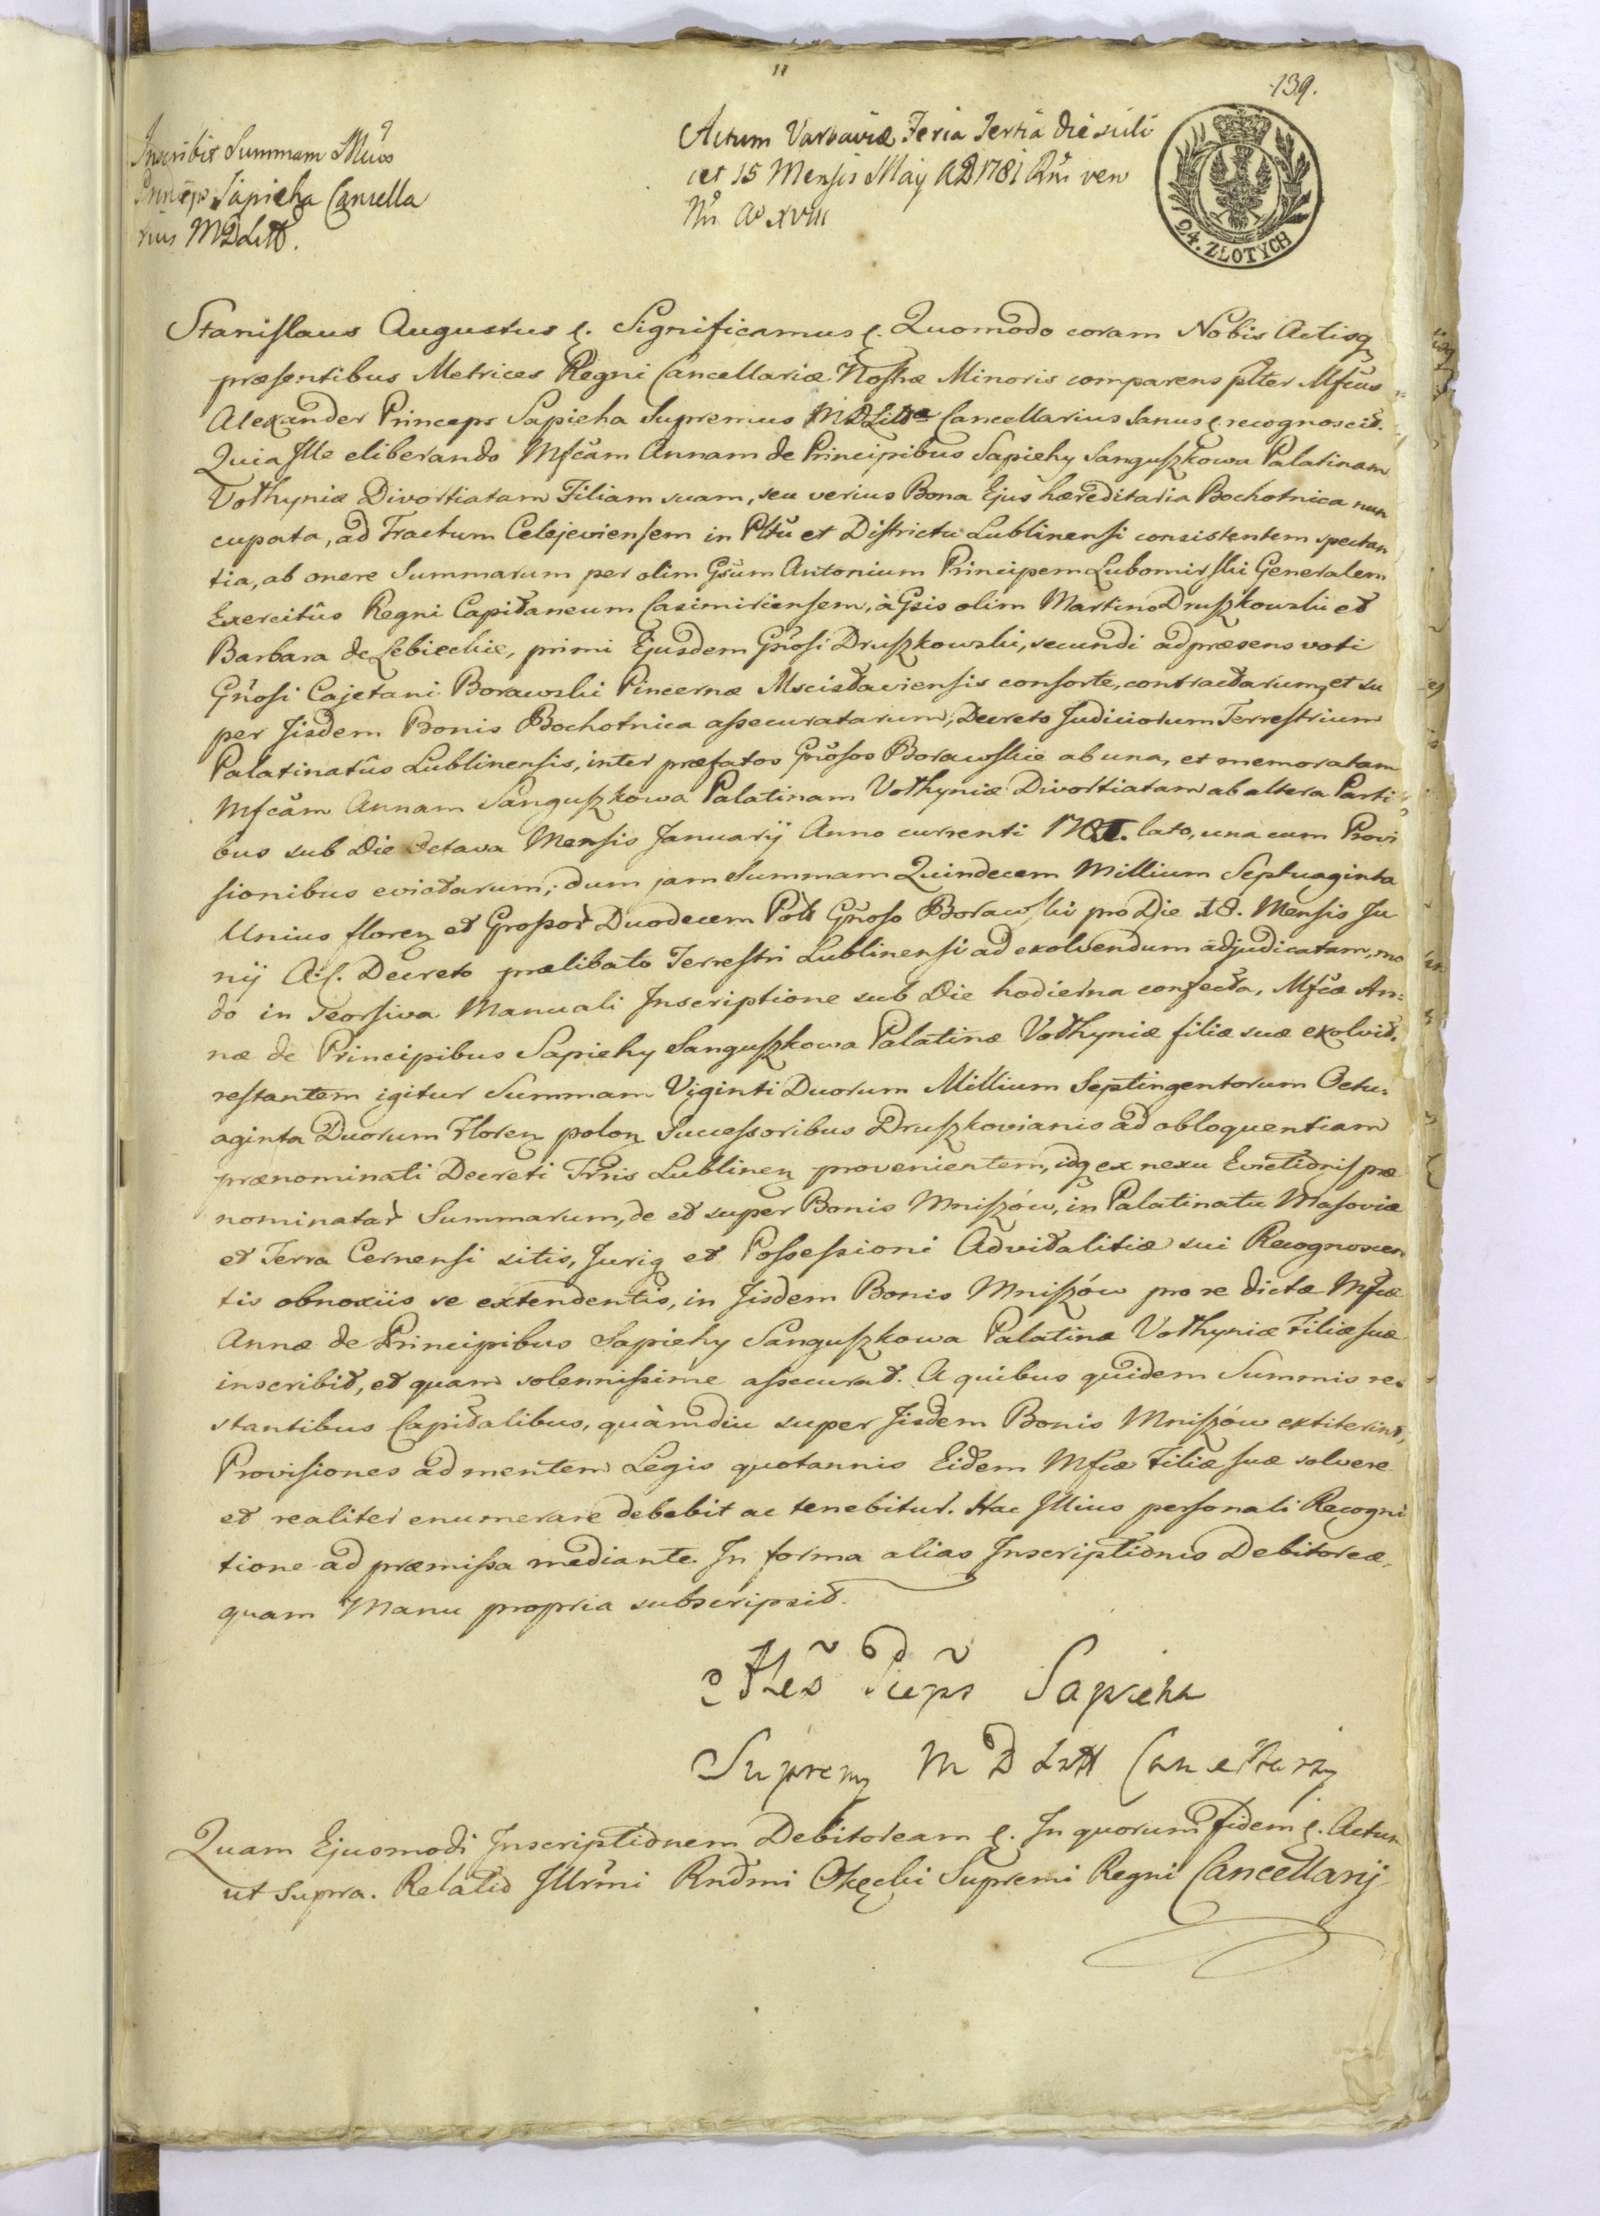 139.
Inscribit Summam Mcus
Princeps Sapieha Cancella
rius MDLitt.
Actum Varsaviæ Feria Tertia die scili
cet 15 Mensis Maij AD 1781 Rni vero
Nri Ao XVIII
24. ZŁOTYCH
Stanislaus Augustus &. Significamus &. Quomodo coram Nobis Actisq
præsentibus Metrices Regni Cancellariæ Nostræ Minoris comparens plter Mfcus
Alexander Princeps Sapieha Supremus MDLitt Cancellarius Sanus & recognoscit.
Quia Ille eliberando Mfcam Annam de Principibus Sapiehy Sanguszkowa Palatinam
Volhyniæ Divortiatam Filiam suam, seu verius Bona Ejus hæreditaria Bochotnica nun
cupata, ad Tractum Celejeviensem in Pltu et Districtu Lublinensi consistentem spectan
tia, ab onere Summarum per olim Gsum Antonium Principem Lubomirski Generalem
Exercitûs Regni Capitaneum Casimiriensem, à Gsis olim Martino Druszkowski et
Barbara de Lebieckie, primi Ejusdem Gnosi Druszkowski, secundi ad præsens voti
Gnosi Cajetani Borawski Pincernæ Mscislaviensis consorte, contractarum, et su
per Jisdem Bonis Bochotnica assecuratarum, Decreto Judiciorum Terrestrium
Palatinatûs Lublinensis, inter præfatos Gnosos Borawskie ab una, et memoratam
Mfcam Annam Sanguszkowa Palatinam Volhyniæ Divortiatam ab altera Parti
bus sub Die Octava Mensis Januarij Anno currenti 1781. lato, una cum Provi
sionibus evictarum; dum jam Summam Quindecem Millium Septuaginta
Unius floren et Grossor Duodecem Pol Gnoso Borawski pro Die 18. Mensis Ju
nij A. &. Decreto prælibato Terrestri Lublinensi ad exolvendum adjudicatam, mo
do in seorsiva Manuali Inscriptione sub Die hodierna confecta, Mfcæ An:
næ de Principibus Sapiehy Sanguszkowa Palatinæ Volhyniæ filiæ suæ exolvit.
restantem igitur Summam Viginti Duorum Millium Septingentorum Octu:
aginta Duorum Floren polon Successoribus Druszkovianis ad obloquentiam
prænominati Decreti Trris Lublinen provenientem, idq ex nexu Evictionis præ
nominatar Summarum, de et super Bonis Mniszów, in Palatinatu Masoviæ
et Terra Cernensi sitis, Juriq et Possessioni Advitalitiæ sui Recognoscen
tis obnoxiis se extendentis, in Jisdem Bonis Mniszów pro re dictæ Mfcæ
Annæ de Principibus Sapiehy Sanguszkowa Palatinæ Volhyniæ Filiæ suæ
inscribit, et quam solennissime assecurat. A quibus quidem Summis re:
stantibus Capitalibus, quàmdiu super Jisdem Bonis Mniszów extiterint,
Provisiones ad mentem Legis quotannis Eidem Mfcæ Filiæ suæ solvere
et realiter enumerare debebit ac tenebitur. Hac Illius personali Recogni
tione ad præmissa mediante. In forma alias Inscriptionis Debitoreæ,
quam Manu propria subscripsit.
Sapieha
Supremy M D Litt Cancellarzy
Quam Ejusmodi Inscriptionem Debitoream &. In quorum fidem &. Actum
ut supra. Relatio Illrmi Rndmi Okęcki Supremi Regni Cancellarij